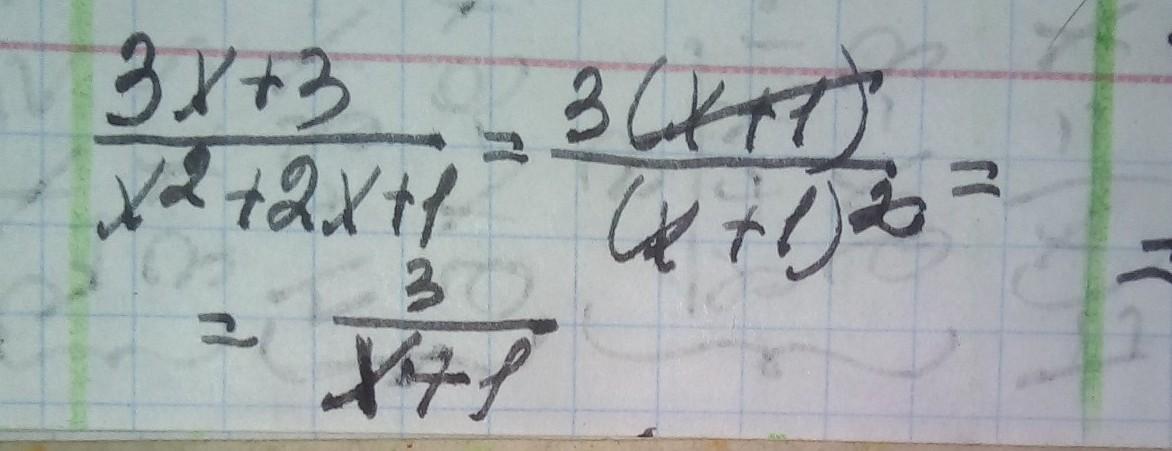 3x+3/x²+2x+1 = 3(x+1)/(x+1)² =
= 3/x+1